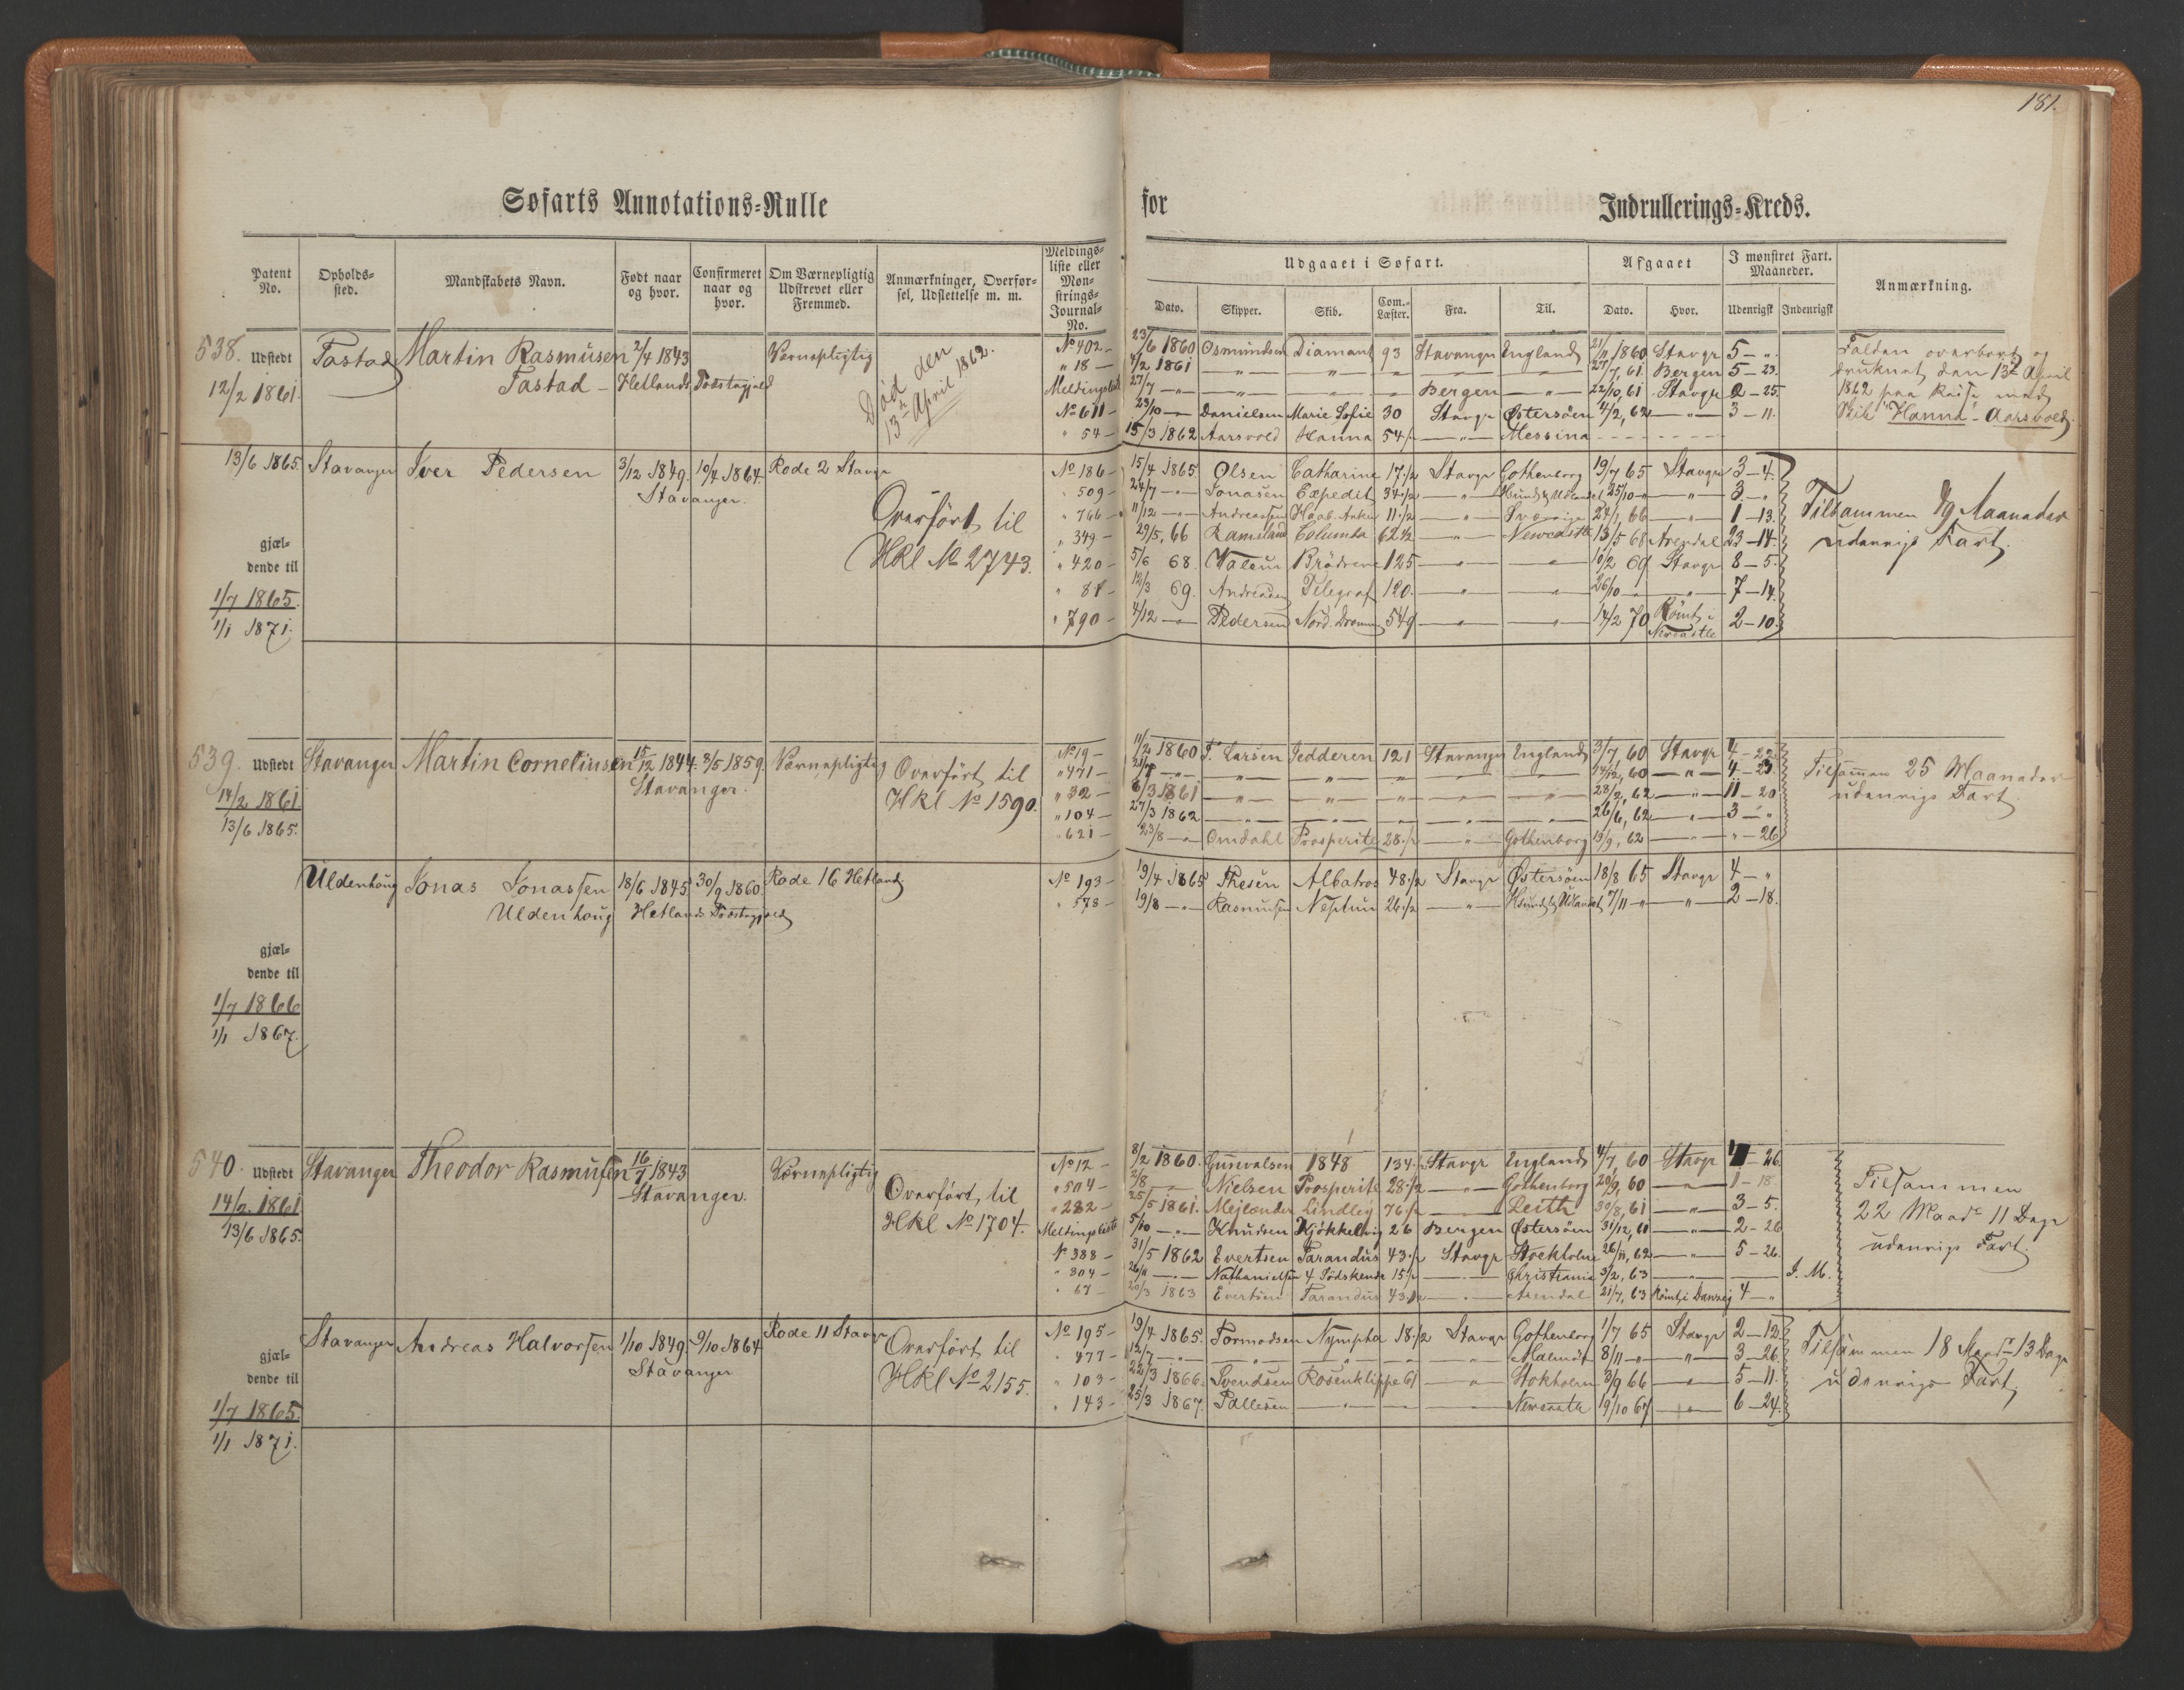 181.
Søfarts Annotations-Rulle for Indrullerings-Kreds.
Patent No. | Opholds-sted. | Mandskabets Navn. | Født naar og hvor. | Confirmeret naar og hvor. | Om Værnepligtig Udskrevet eller Fremmed. | Anmærkninger, Overførsel, Udslettelse m. m. | Meldings-liste eller Mønstrings-Journal-No. | Udgaaet i Søfart. | Afgaaet | I mønstret Fart. Maaneder. | Anmærkning.
Dato. | Skipper. | Skib. | Com.-Læster. | Fra. | Til. | Dato. | Hvor. | Udenrigsk | Indenrigsk
538. Udstedt 12/2 1861. | Tastad | Martin Rasmusen Tastad | 2/4 1843 Hetlands Præstegjeld | Værnepligtig | Død den 13de April 1862.
No 402 | 23/6 1860 | Osmundsen | Diamant | 93 | Stavanger | England | 21/11 1860 | Stavgr | 5 – "
" 18 | 4/2 1861 | " | " | " | " | " | 27/7, 61 | Bergen | 5 – 23.
Meldingsliste | 27/7 – " | " | " | " | Bergen | " | 22/10, 61 | Stavgr | 2 – 25.
No 611 | 23/10 – " | Danielsen | Marie Sofie | 30 | Stavgr | Østersøen | 4/2, 62 | " | 3 – 11.
" 54 | 15/3 1862 | Aarsvold | Hanna | 54 | " | Messina
Falden overbort og druknet den 13de April 1862 paa Reise med Skib "Hanna" – Aarsvold.
13/6 1865. | Stavanger | Iver Pedersen | 3/12 1849. Stavanger. | 10/4 1864 | Rode 2 Stavgr | Overført til Hkl No 2743.
gjæl-
dende til
1/7 1865.
1/1 1871.
No 186 | 15/4 1865. | Olsen | Catharine | 17 1/2 | Stavgr | Gothenborg | 19/7 65 | Stavgr | 3 – 4.
" 509 | 24/7 – " | Jonasen | Expedit | 34 1/2 | " | | 25/10 – " | " | 3 – "
" 766 | 11/12 – " | Andreassen | Haab. Anker | 11 1/2 | " | Sverrige | 24/1, 66 | " | 1 – 13.
" 349 | 29/5, 66 | Ramsland | Columba | 62 1/2 | " | Newcastle | 13/5 68 | Arendal | 23 – 14.
" 420 | 5/6 68. | Valeur | Brødrene | 125 | " | " | 10/2 69 | Stavgr | 8 – 5.
" 81 | 12/3 69. | Andreasen | Telegraf | 120. | " | " | 26/10 – " | " | 7 – 14.
" 790 | 4/12 – " | Pedersen | Nord. Dronning | 549 | " | " | 14/2 70 | Rømt i Newcastle | 2 – 10.
Tilsammen 49 Maaneder udenrigs Fart.
539. Udstedt 14/2 1861 13/6 1865. | Stavanger | Martin Corneliusen | 15/12 1844. Stavanger. | 8/5 1859. | Værnepligtig | Overført til Hkl No 1590.
No 19 | 11/2 1860 | T. Larsen | Jedderen | 121 | Stavanger | England | 3/7, 60 | Stavgr | 4 – 22.
" 471 | " | " | " | " | " | " | 14/12, 60 | " | 4 – 23.
" 32 | 6/3 1861 | " | " | " | " | " | 28/2, 62 | " | 11 – 20
" 104 | 27/3 1862 | " | " | " | " | " | 26/6, 62 | " | 3 – "
" 621 | 23/8 – " | Omdahl | Prosperite | 28 1/2 | " | Gothenborg | 19/9, 62 | " | " – 26
Tilsammen 25 Maaneder udenrigs Fart.
Uldenhaug | Jonas Jonassen Uldenhaug | 18/6 1845 Hetlands Præstegjeld | 30/9 1860. | Rode 16 Hetland
gjæl-
dende til
1/7 1866
1/1 1867.
No 193 | 19/4 1865 | Thesen | Albatros | 48 1/2 | Stavgr | Østersøen | 18/8 65 | Stavgr | 4 – "
" 578 | 19/8 – " | Rasmusen | Neptun | 26 1/2 | " | | 7/11 – " | " | 2 – 18.
540. Udstedt 14/2 1861 13/6 1865. | Stavanger | Theodor Rasmusen | 16/7 1843 Stavanger. | Værnepligtig | Overført, til Hkl No 1704.
No 12 | 8/2 1860. | Gunvalsen | 1848 | 134. | Stavgr | England | 4/7, 60 | Stavgr | 4 – 26.
" 504 | 2/8 – " | Nielsen | Prosperite | 28 1/2 | " | Gothenborg | 20/9, 60 | " | 1 – 18
" 282 | 25/5 1861. | Mejlænder | Lindley | 76 1/2 | " | Leith | 30/8, 61 | " | 3 – 5.
Meldingsliste | 5/10 – " | Knudsen | Kjøkkelvig | 26 | Bergen | Østersøen | 31/12, 61 | " | 2 – 26
No 388 | 31/5 1862 | Evertsen | Tarandus | 43 1/2 | Stavgr | Stockholm | 26/11, 62 | " | 5 – 26.
" 804 | 26/11 – " | Nathanielsen | 4 Sødskende | 15 1/2 | " | Christiania | 3/2, 63 | " | J. M.
" 67 | 20/3 1863 | Evertsen | Tarandus | 43 1/2 | " | Arendal | 21/7, 63 | Rømt i Danzig | 4 – "
Tilsammen 22 Maadr 11 Dage udenrigs Fart.
Stavanger | Andreas Halvorsen | 1/10 1849. Stavanger | 9/10 1864 | Rode 11 Stavgr | Overført til Hkl No 2155.
gjæl-
dende til
1/7 1865.
1/1 1871.
No 195 | 19/4 1865. | Tormodsen | Nympha | 18 1/2 | Stavgr | Gothenborg | 1/7 65 | Stavgr | 2 – 12.
" 477 | 12/7 – " | " | " | " | " | Malmø | 8/11 – " | " | 3 – 26.
" 103 | 22/3 1866. | Svendsen | Rosenklippe | 61 | " | Stokholm | 3/9 66 | " | 5 – 11.
" 143 | 25/3 1867. | Pallesen | " | " | " | Newcastle | 19/10 67 | " | 6 – 24.
Tilsammen 18 Maadr 13 Dage udenrigs Fart.